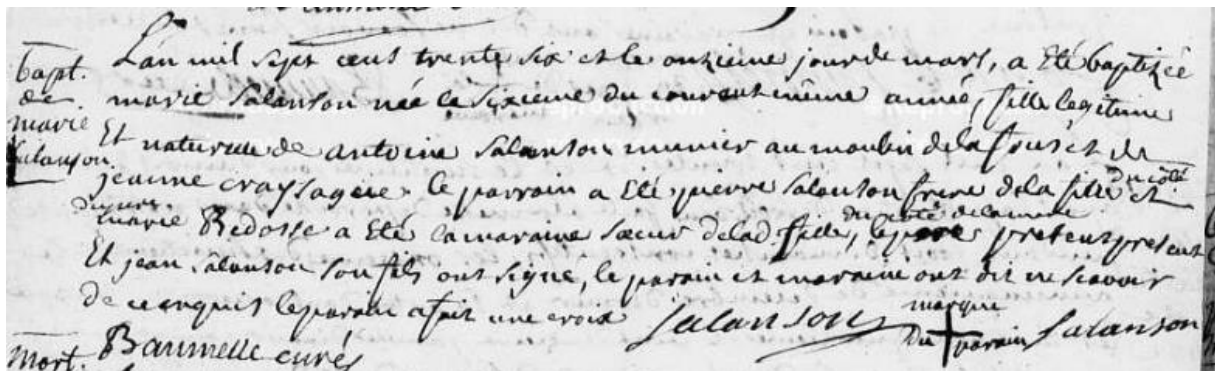 bapt.
de
marie
Salanson
L'an mil sept cens trente six et le onzieme jour de mars, a Eté baptizée
marie Salanson née le sixieme du courent même année, fille legitime
Et naturelle de antoine Salanson munier au moulin de la fous et de
jeanne crayssagere. le parrain a Eté pierre Salanson frere de la fille et
du coté
du pere
marie Redosse a Eté la maraine sœur de lad. fille, le pere present
du coté de la mere
Et jean Salanson son fils ont signé, le parain et maraine ont dit ne scavoir
de ce enquis le parain a fait une croix Salanson marque
du + parain Salanson
mort. Baumelle curé